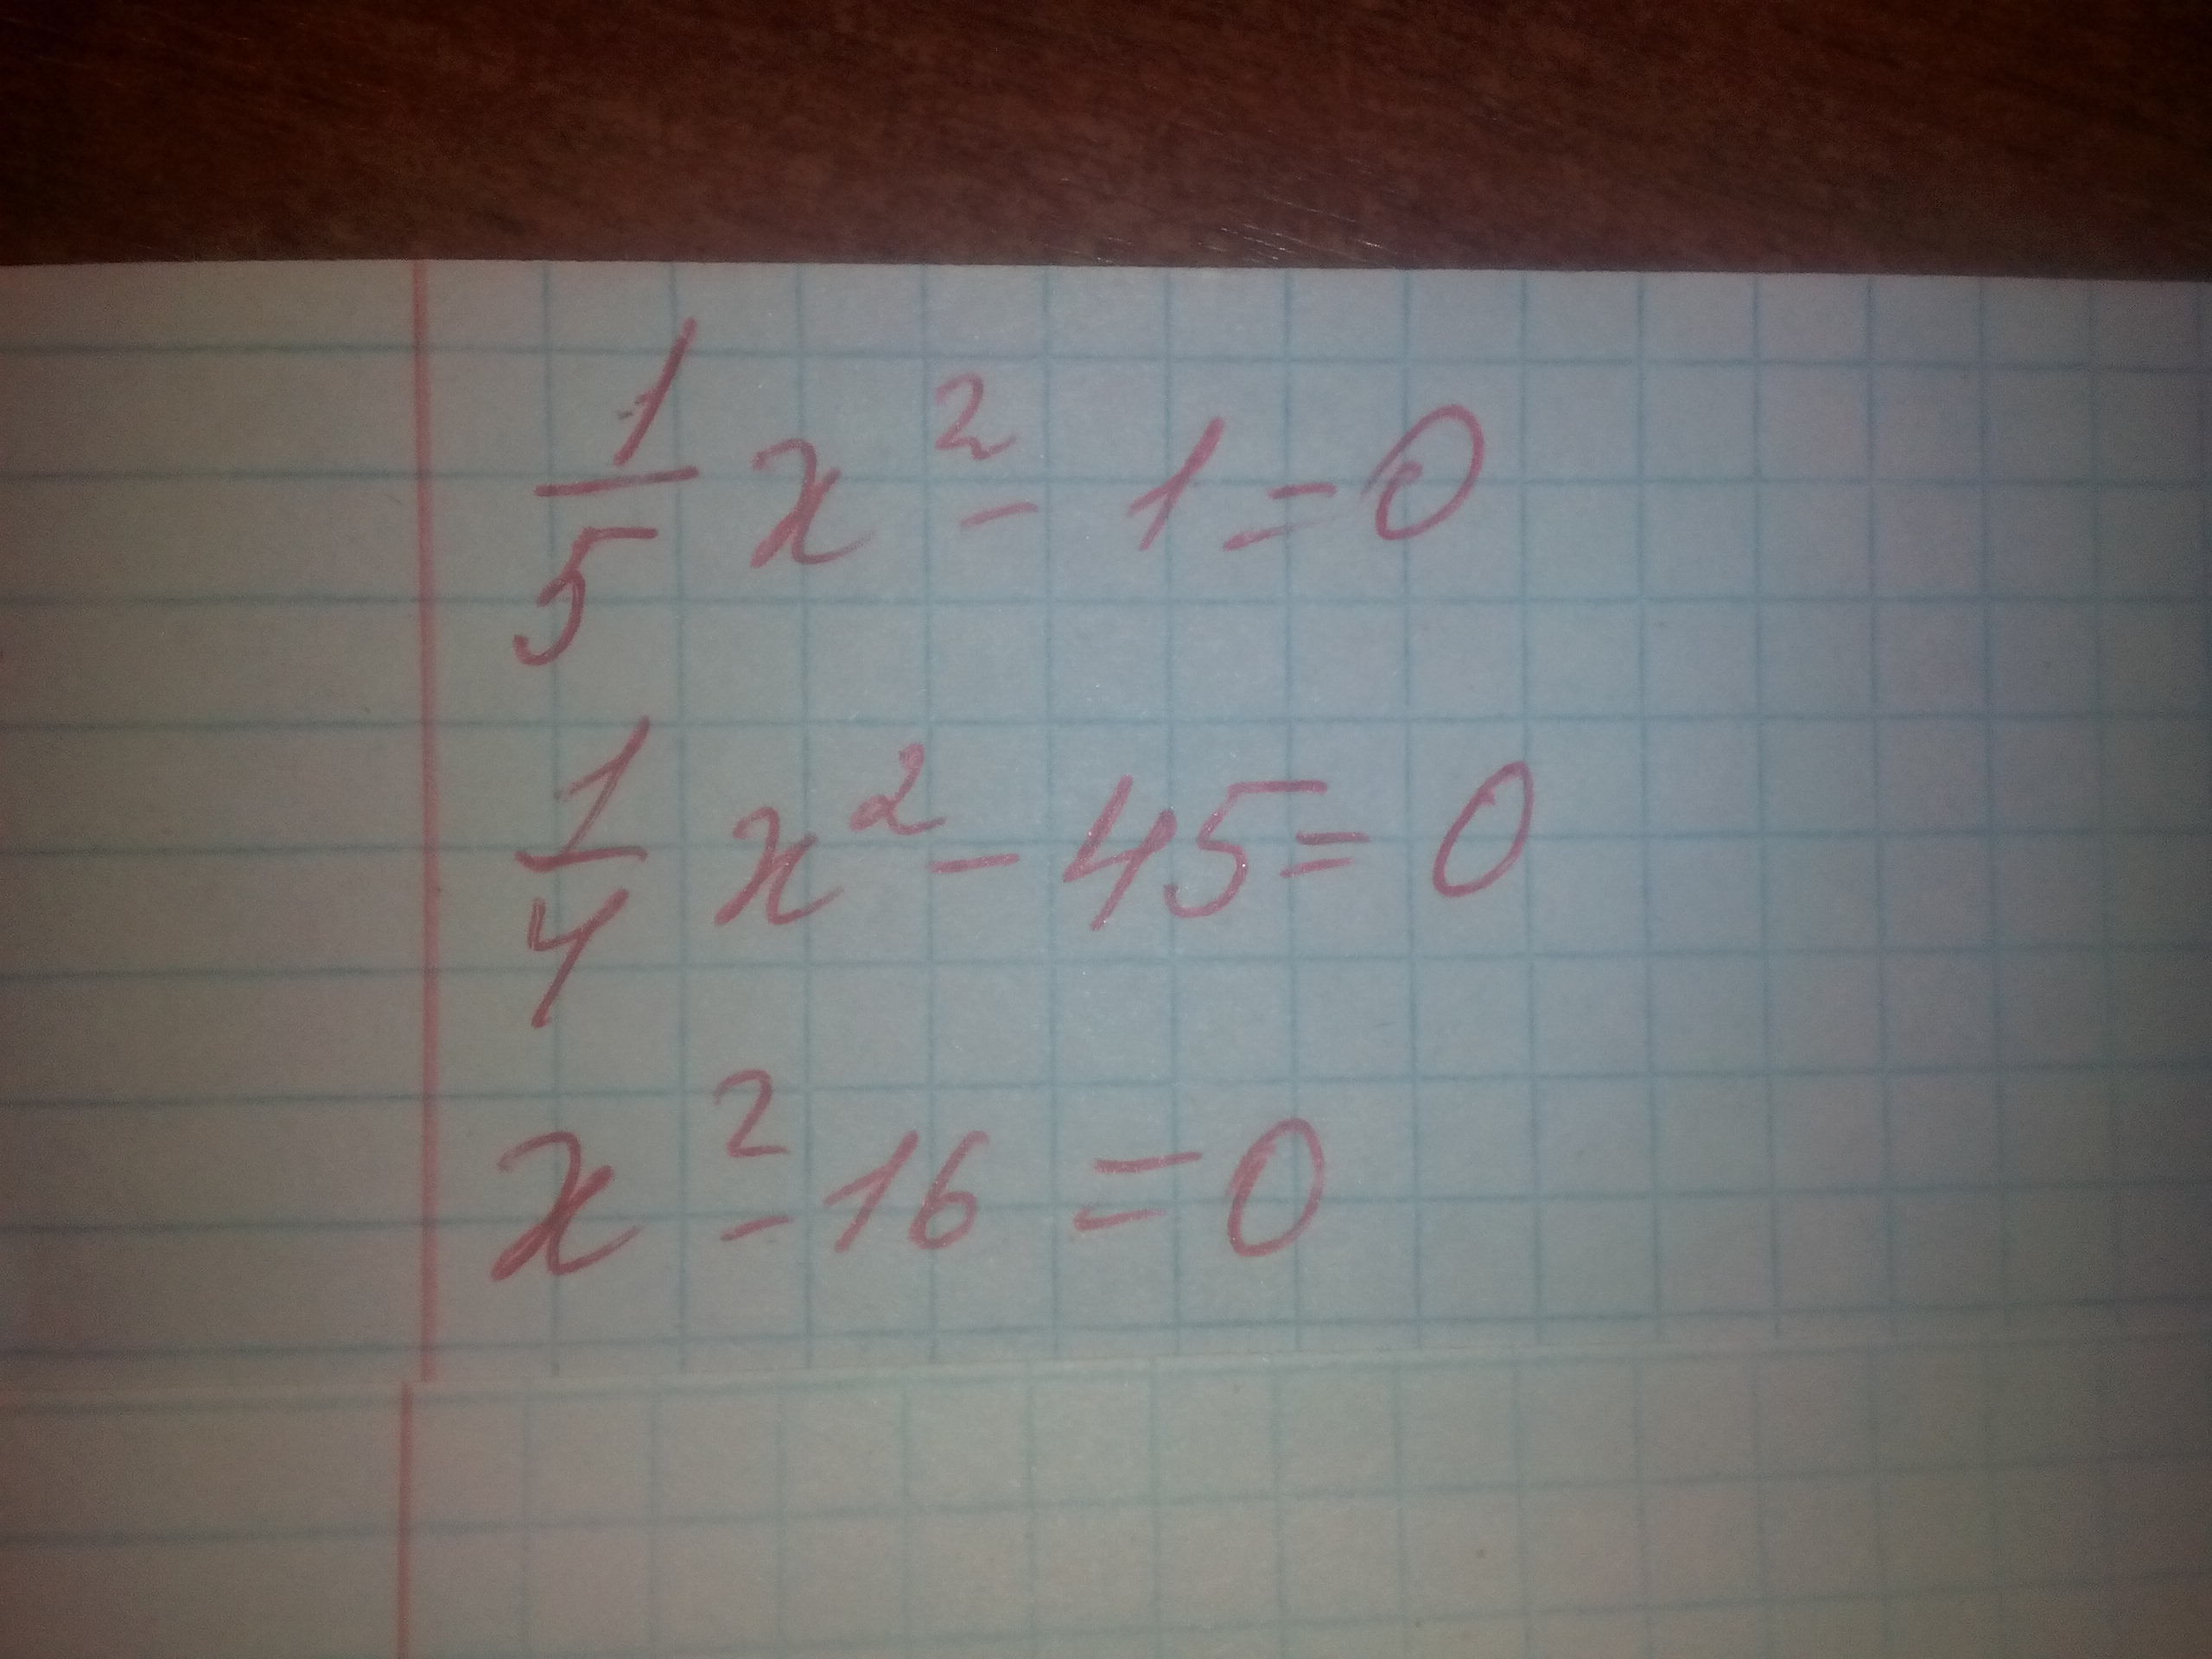 1/5 x² - 1 = 0
1/4 x² - 45 = 0
x² - 16 = 0